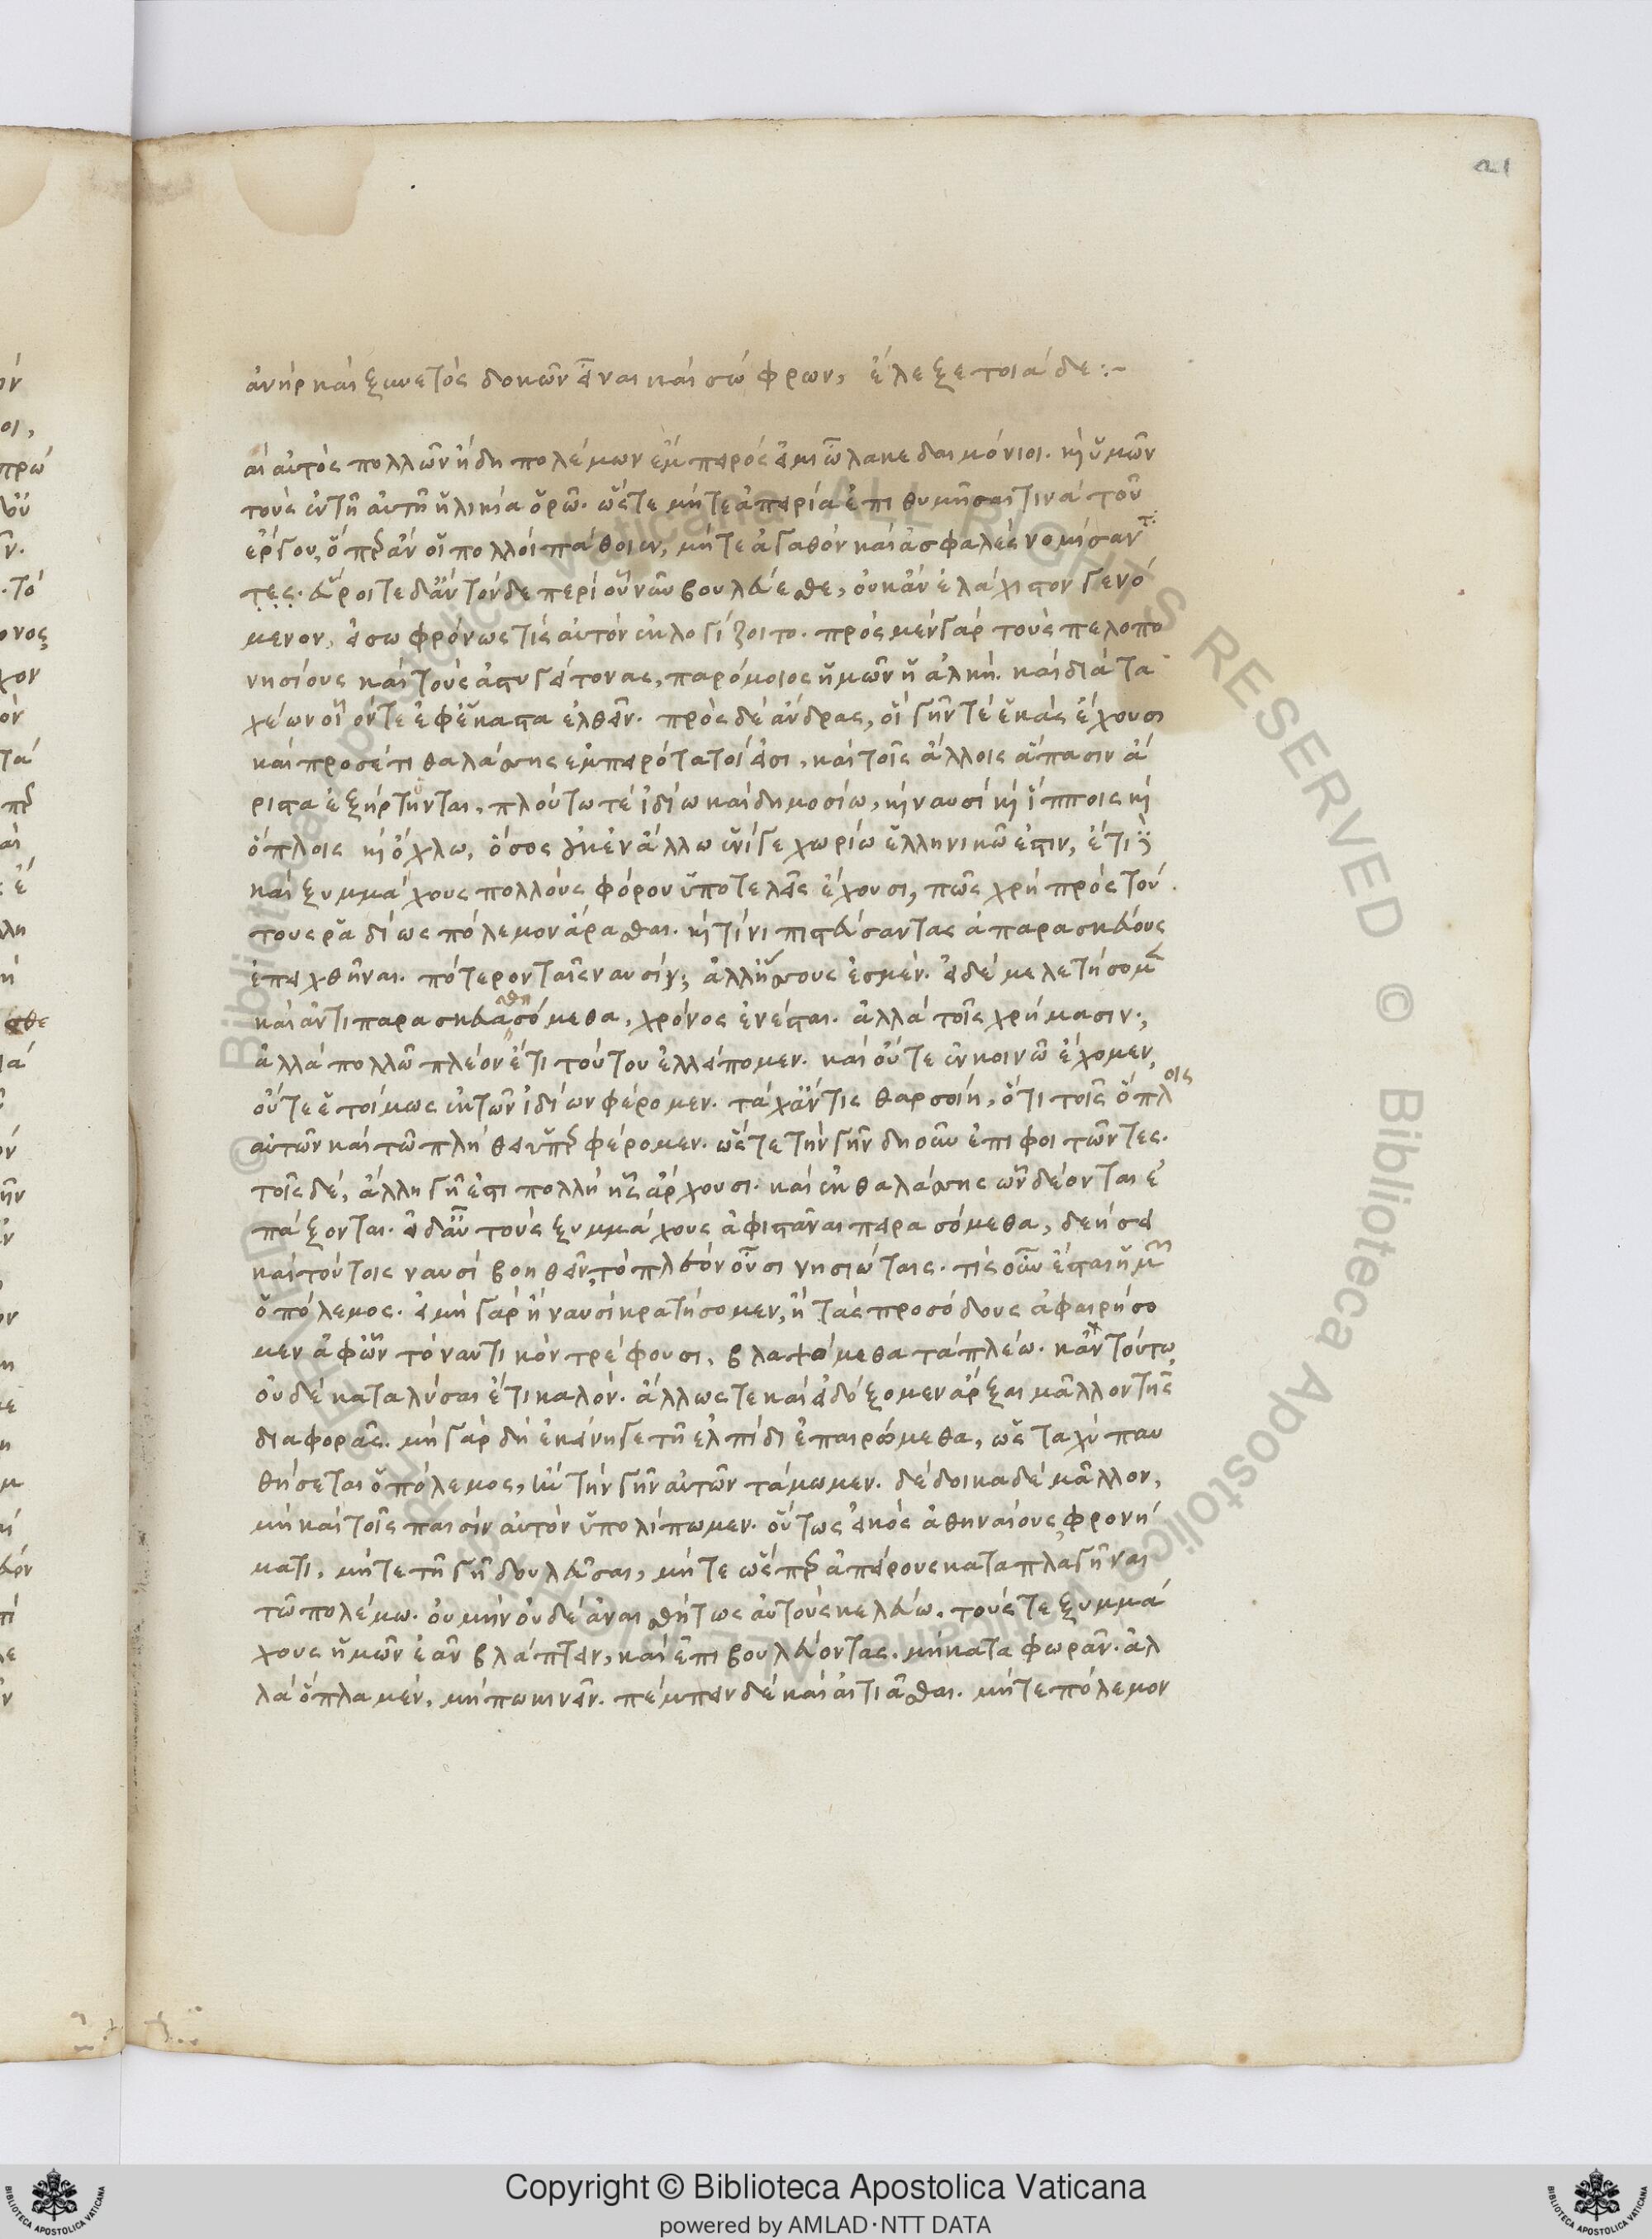 21
ἀνὴρ καὶ ξυνετὸς δοκῶν εἶναι καὶ σώφρων, ἔλεξε τοιάδε :~
αὶ αὐτὸς πολλῶν ἤδη πολέμων ἔμπειρός εἰμι ὦ λακεδαιμόνιοι. κ(αὶ) ὑμῶν
τοὺς ἐν τῆ αὐτῆ ἡλικία ὁρῶ. ὥστε μήτε ἀπειρία ἐπιθυμῆσαι τινὰ τοῦ
ἔργου, ὅπερ ἂν οἱ πολλοὶ πάθοιεν, μήτε ἀγαθὸν καὶ ἀσφαλὲς νομίσαντ
τες. εὕροιτε δ' ἂν τόνδε περὶ οὗ νῦν βουλεύεσθε, οὐκ ἂν ἐλάχιστον γενό
μενον, εἰ σωφρόνως τὶς αὐτὸν ἐκλογίζοιτο. πρὸς μὲν γὰρ τοὺς πελοπο
νησίους καὶ τοὺς ἀστυγείτονας, παρόμοιος ἡμῶν ἡ ἀλκή. καὶ διὰ τα
χέων οἷόν τε ἐφ' ἕκαστα ἐλθεῖν. πρὸς δὲ ἄνδρας, οἳ γῆν τὲ ἑκὰς ἔχουσι
καὶ προσέτι θαλάσσης ἐμπειρότατοί εἰσι, καὶ τοῖς ἄλλοις ἅπασιν ἄ
ριστα ἐξήρτηνται, πλούτω τὲ ἰδίω καὶ δημοσίω, κ(αὶ) ναυσὶ κ(αὶ) ἵπποις κ(αὶ)
ὅπλοις κ(αὶ) ὄχλω, ὅσος οὐκ ἐν ἄλλω ἑνί γε χωρίω ἑλληνικῶ ἐστιν, ἔτι δὲ
καὶ ξυμμάχους πολλοὺς φόρου ὑποτελεῖς ἔχουσι, πῶς χρὴ πρὸς τού
τους ῥαδίως πόλεμον ἄρασθαι. κ(αὶ) τίνι πιστεύσαντας ἀπαρασκεύους
ἐπειχθῆναι. πότερον ταῖς ναυσίν; ἀλλ' ἥσσους ἐσμέν. εἰ δὲ μελετήσομ(εν)
καὶ ἀντιπαρασκευασόμεθα, χρόνος ἐνέσται. ἀλλὰ τοῖς χρήμασιν;
ἀλλὰ πολλῶ πλέον ἔτι τούτου ἐλλείπομεν. καὶ οὔτε ἐν κοινῶ ἔχομεν,
οὔτε ἑτοίμως ἐκ τῶν ἰδίων φέρομεν. τάχ' ἄν τις θαρσοίη, ὅτι τοῖς ὅπλοις
αὐτῶν καὶ τῶ πλήθει ὑπερφέρομεν. ὥστε τὴν γῆν δηοῦν ἐπιφοιτῶντες.
τοῖς δὲ, ἄλλη γῆ ἐστι πολλὴ ἧς ἄρχουσι. καὶ ἐκ θαλάσσης ὧν δέονται ἐ
πάξονται. εἰ δ' αὖ τοὺς ξυμμάχους ἀφιστάναι πειρασόμεθα, δεήσει
καὶ τούτοις ναυσὶ βοηθεῖν, τὸ πλέον οὖσι νησιώταις. τίς οὖν ἔσται ἡμῶν
ὁ πόλεμος. εἰ μὴ γὰρ ἢ ναυσὶ κρατήσομεν, ἢ τὰς προσόδους ἀφαιρήσο
μεν ἀφ' ὧν τὸ ναυτικὸν τρέφουσι, βλαψόμεθα τὰ πλέω. κἂν τούτω
οὐδὲ καταλύσαι ἔτι καλόν. ἄλλως τε καὶ εἰ δόξομεν ἄρξαι μᾶλλον τῆς
διαφορᾶς. μὴ γὰρ δὴ ἐκείνη γε τῆ ἐλπίδι ἐπαιρώμεθα, ὡς ταχὺ παυ
θήσεται ὁ πόλεμος, ἢν τὴν γῆν αὐτῶν τάμωμεν. δέδοικα δὲ μᾶλλον,
μὴ καὶ τοῖς παισὶν αὐτὸν ὑπολίπωμεν. οὕτως εἰκὸς ἀθηναίους φρονή
ματι, μήτε τῆ γῆ δουλεῦσαι, μήτε ὥσπερ ἀπείρους καταπλαγῆναι
τῶ πολέμω. οὐ μὴν οὐδὲ ἀναισθήτως αὐτοὺς κελεύω. τούς τε ξυμμά
χους ἡμῶν ἐᾶν βλάπτειν, καὶ ἐπιβουλεύοντας. μὴ καταφωρᾶν. ἀλ
λὰ ὅπλα μὲν, μήπω κινεῖν. πέμπειν δὲ καὶ αἰτιᾶσθαι. μήτε πόλεμον
Copyright © Biblioteca Apostolica Vaticana
powered by AMLAD·NTT DATA